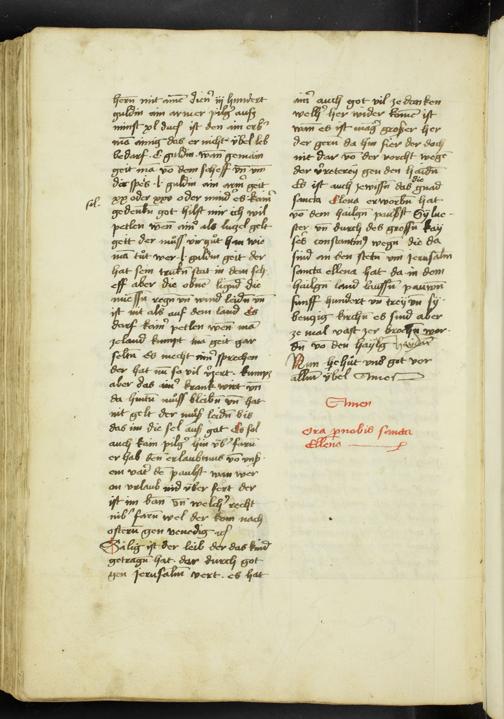 hern mit ainē dienˀ iij hundert
guldin ain armer pilgˀ auf
minst xl duc ist den ain erbˀ
mā ainig das er nicht v̈bel leb
bedarf · C guldin wan gemain
geit mā vō dem scheff vn̄ vm̄
die speis · l · guldin ain arm geit
xx oder xxx oder mind es kainˀ
sol.
gedenkn got hilft mir ich wil
petlen wen ainˀ als lugel gelt
geit der muſſ v̈r gut han wie
mā tut wer · l guldin geit der
hat sein truckn stat in dem sch
eff aber die obne lign̄d die
muessn regn vn̄ wind leidn vn̄
ist nit als auf dem land Es
darf kainˀ petlen wen mā
jeland kumpt mā geit gar
seltn Es mecht ainˀ sprechen
der hat im so vil v̈zert · kumpt
aber das ainˀ krank wirt vn̄
da hindn muſſ bleibn vn̄ hat
nit gelt der muſſ leidn bis
das im die sel auſ gat Es sol
auch kain pilgˀ hin v̈bˀ farn
er hab den erlaubnus vō vnſ
em vatˀ de paubst wan wer
on urlaub hin v̈ber fert der
ist im ban vn̄ welchˀ recht
hibˀ farn wel der kom nach
ostern gen venedig
Sälig ist der leib der das kind
getragn hat · dar durch got
gen jerusalm vert · es hat
ainˀ auch got vil ze danken
welchˀ her wider kumē ist
wan es ist mag großer her
der gern da hin fier der doch
nie dar vō der vorcht wege
der v̈reterey gen den haidn
Es ist auch zewissn das die gnad
sancta Elena erworbn hat
vō dem hailgn paubst Syluˀ
ster vn̄ durch des großn kay
sers constantinj wegn die da
sind an den stetn vm Jerusalm
sancta ellena hat da in dem
hailgn land laussn pauwn
funff hundert vn̄ treÿ vn̄ sÿ
benczig kirchn es sind aber
ze mal vast zer brochn wor
dn vō den haydn
Nun behut vns got vor
allem v̈bel Amen
Amen
Ora pnobis sancta
Ellena